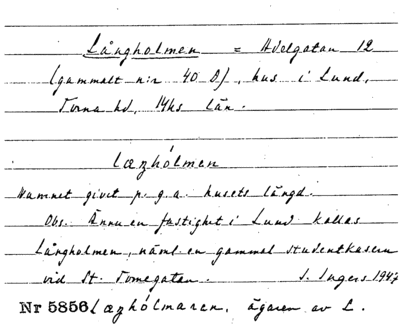 Långholmen = Adelgatan 12
(gammalt n:r 40 D), hus i Lund,
Torna hd, Mhs län.
læŋhólmen
Namnet givet p.g.a. husets längd.
Obs. Ännu en fastighet i Lund kallas
Långholmen, näml. en gammal studentkasern
vid St. Tomegatan. I. Ingers 1947
Nr 5856 læŋhólmaren, ägaren av L.